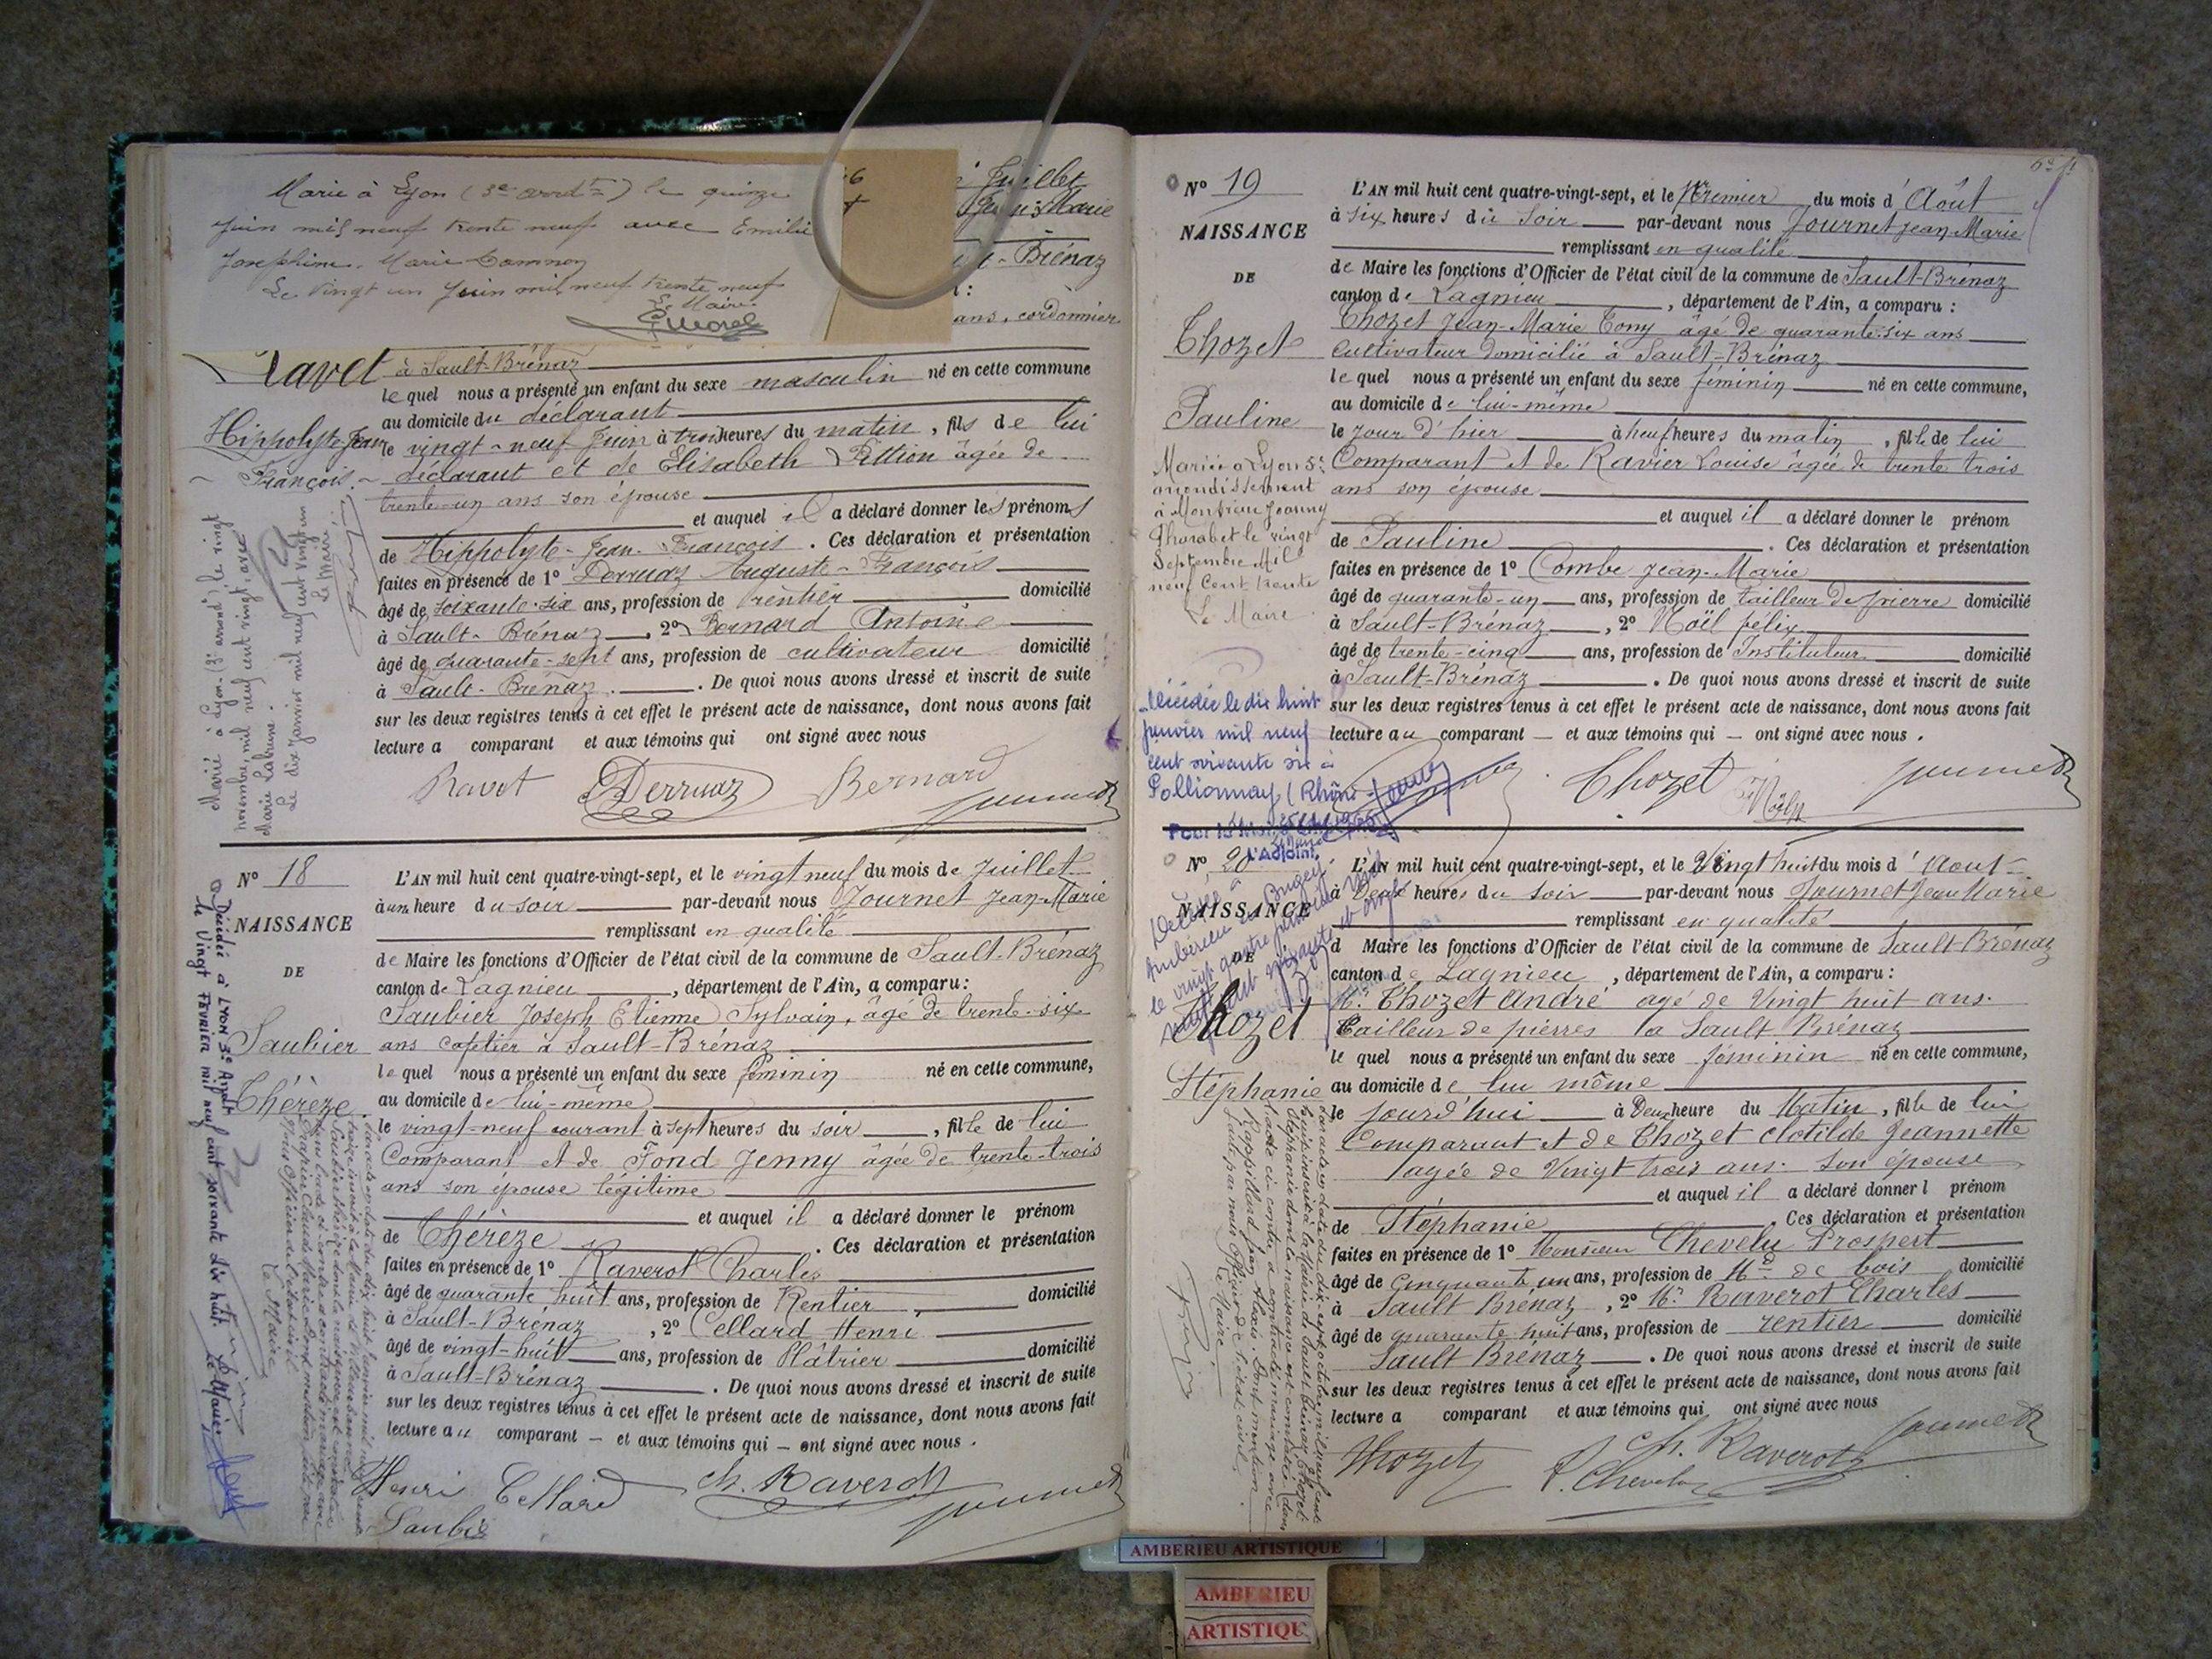 Marié à Lyon (3e arrondt) le quinze
Juin mil neuf trente neuf avec Emilie
Josephine Marie
Le Vingt un Juin mil neuf trente neuf
Le Maire
Juillet
Jean-Marie
Brénaz
ans, cordonnier
Ravet
Hippolyte-Jean
François
à Sault-Brénaz
le quel nous a présenté un enfant du sexe masculin né en cette commune
au domicile du déclarant
le vingt-neuf Juin à trois heures du matin, fils de lui
déclarant et de Elisabeth Pittion âgée de
trente-un ans son épouse
et auquel il a déclaré donner les prénoms
de Hippolyte-Jean-François. Ces déclaration et présentation
faites en présence de 1º Derruaz Auguste-François
âgé de soixante-six ans, profession de rentier domicilié
à Sault-Brénaz, 2º Bernard Antoine
âgé de quarante-sept ans, profession de cultivateur domicilié
à Sault-Brénaz. De quoi nous avons dressé et inscrit de suite
sur les deux registres tenus à cet effet le présent acte de naissance, dont nous avons fait
lecture a comparant et aux témoins qui ont signé avec nous
Ravet Derruaz Bernard Journet
Marié à Lyon (3e arrond) le vingt
novembre, mil neuf cent vingt, avec
Marie Labrune.
Le dix janvier mil neuf cent vingt un
Le Maire
Nº 18
NAISSANCE
DE
Saubier
Thérèze
L'AN mil huit cent quatre-vingt-sept, et le vingt neuf du mois de Juillet
à une heure du soir par-devant nous Journet Jean-Marie
remplissant en qualité
de Maire les fonctions d'Officier de l'état civil de la commune de Sault-Brénaz
canton de Lagnieu, département de l'Ain, a comparu :
Saubier Joseph Etienne Sylvain, âgé de trente-six
ans cafetier à Sault-Brénaz
le quel nous a présenté un enfant du sexe féminin né en cette commune,
au domicile de lui-même
le vingt-neuf courant à sept heures du soir, fille de lui
Comparant et de Fond Jenny âgée de trente-trois
ans son épouse légitime
et auquel il a déclaré donner le prénom
de Thérèze. Ces déclaration et présentation
faites en présence de 1º Raverot Charles
âgé de quarante huit ans, profession de Rentier, domicilié
à Sault-Brénaz, 2º Cellard Henri
âgé de vingt-huit ans, profession de Plâtrier domicilié
à Sault-Brénaz. De quoi nous avons dressé et inscrit de suite
sur les deux registres tenus à cet effet le présent acte de naissance, dont nous avons fait
lecture au comparant – et aux témoins qui – ont signé avec nous.
Henri Cellard Ch. Raverot Journet
Saubier
Décédé à LYON 3e Arrdt
le Vingt FEVRIER mil neuf cent soixante dix huit. Le Maire
Nº 19
NAISSANCE
DE
Thozet
Pauline
Mariée à Lyon 5e
arrondissement
à Monsieur Joanny
Thorabet le vingt
Septembre Mil
neuf Cent trente
Le Maire
Décédée le dix huit
janvier mil neuf
cent soixante six à
Pollionnay (Rhône)
L'Adjoint.
L'AN mil huit cent quatre-vingt-sept, et le Premier du mois d'Août
à six heures du soir par-devant nous Journet Jean-Marie
remplissant en qualité
de Maire les fonctions d'Officier de l'état civil de la commune de Sault-Brénaz
canton de Lagnieu, département de l'Ain, a comparu :
Thozet Jean-Marie Tony âgé de quarante-six ans
Cultivateur domicilié à Sault-Brénaz
le quel nous a présenté un enfant du sexe féminin né en cette commune,
au domicile de lui-même
le jour d'hier à neuf heures du matin, fille de lui
Comparant et de Ravier Louise âgée de trente trois
ans son épouse
et auquel il a déclaré donner le prénom
de Pauline. Ces déclaration et présentation
faites en présence de 1º Combe Jean-Marie
âgé de quarante-un ans, profession de tailleur de pierre domicilié
à Sault-Brénaz, 2º Noël félix
âgé de trente-cinq ans, profession de Instituteur domicilié
à Sault-Brénaz. De quoi nous avons dressé et inscrit de suite
sur les deux registres tenus à cet effet le présent acte de naissance, dont nous avons fait
lecture au comparant – et aux témoins qui – ont signé avec nous.
Thozet Noël Journet
Nº 20
NAISSANCE
DE
Thozet
Stéphanie
L'AN mil huit cent quatre-vingt-sept, et le Vingt huit du mois d'Aout
à Deux heures du soir par-devant nous Journet Jean Marie
remplissant en qualité
d Maire les fonctions d'Officier de l'état civil de la commune de Sault-Brénaz
canton de Lagnieu, département de l'Ain, a comparu :
Mr Thozet André agé de Vingt huit ans.
Tailleur de pierres a Sault Brénaz
le quel nous a présenté un enfant du sexe féminin né en cette commune,
au domicile de lui même
le jourd'hui à Deux heure du Matin, fille de lui
Comparant et de Thozet Clotilde Jeannette
agée de Vingt trois ans. Son épouse
et auquel il a déclaré donner l prénom
de Stéphanie Ces déclaration et présentation
faites en présence de 1º Monsieur Chevelu Prospert
âgé de Cinquante un ans, profession de Md de bois domicilié
à Sault Brénaz, 2º Mr Raverot Charles
âgé de quarante huit ans, profession de rentier domicilié
Sault Brénaz. De quoi nous avons dressé et inscrit de suite
sur les deux registres tenus à cet effet le présent acte de naissance, dont nous avons fait
lecture a comparant et aux témoins qui ont signé avec nous
Thozet P. Chevelu Ch. Raverot Journet
AMBERIEU ARTISTIQUE
AMBERIEU
ARTISTIQU